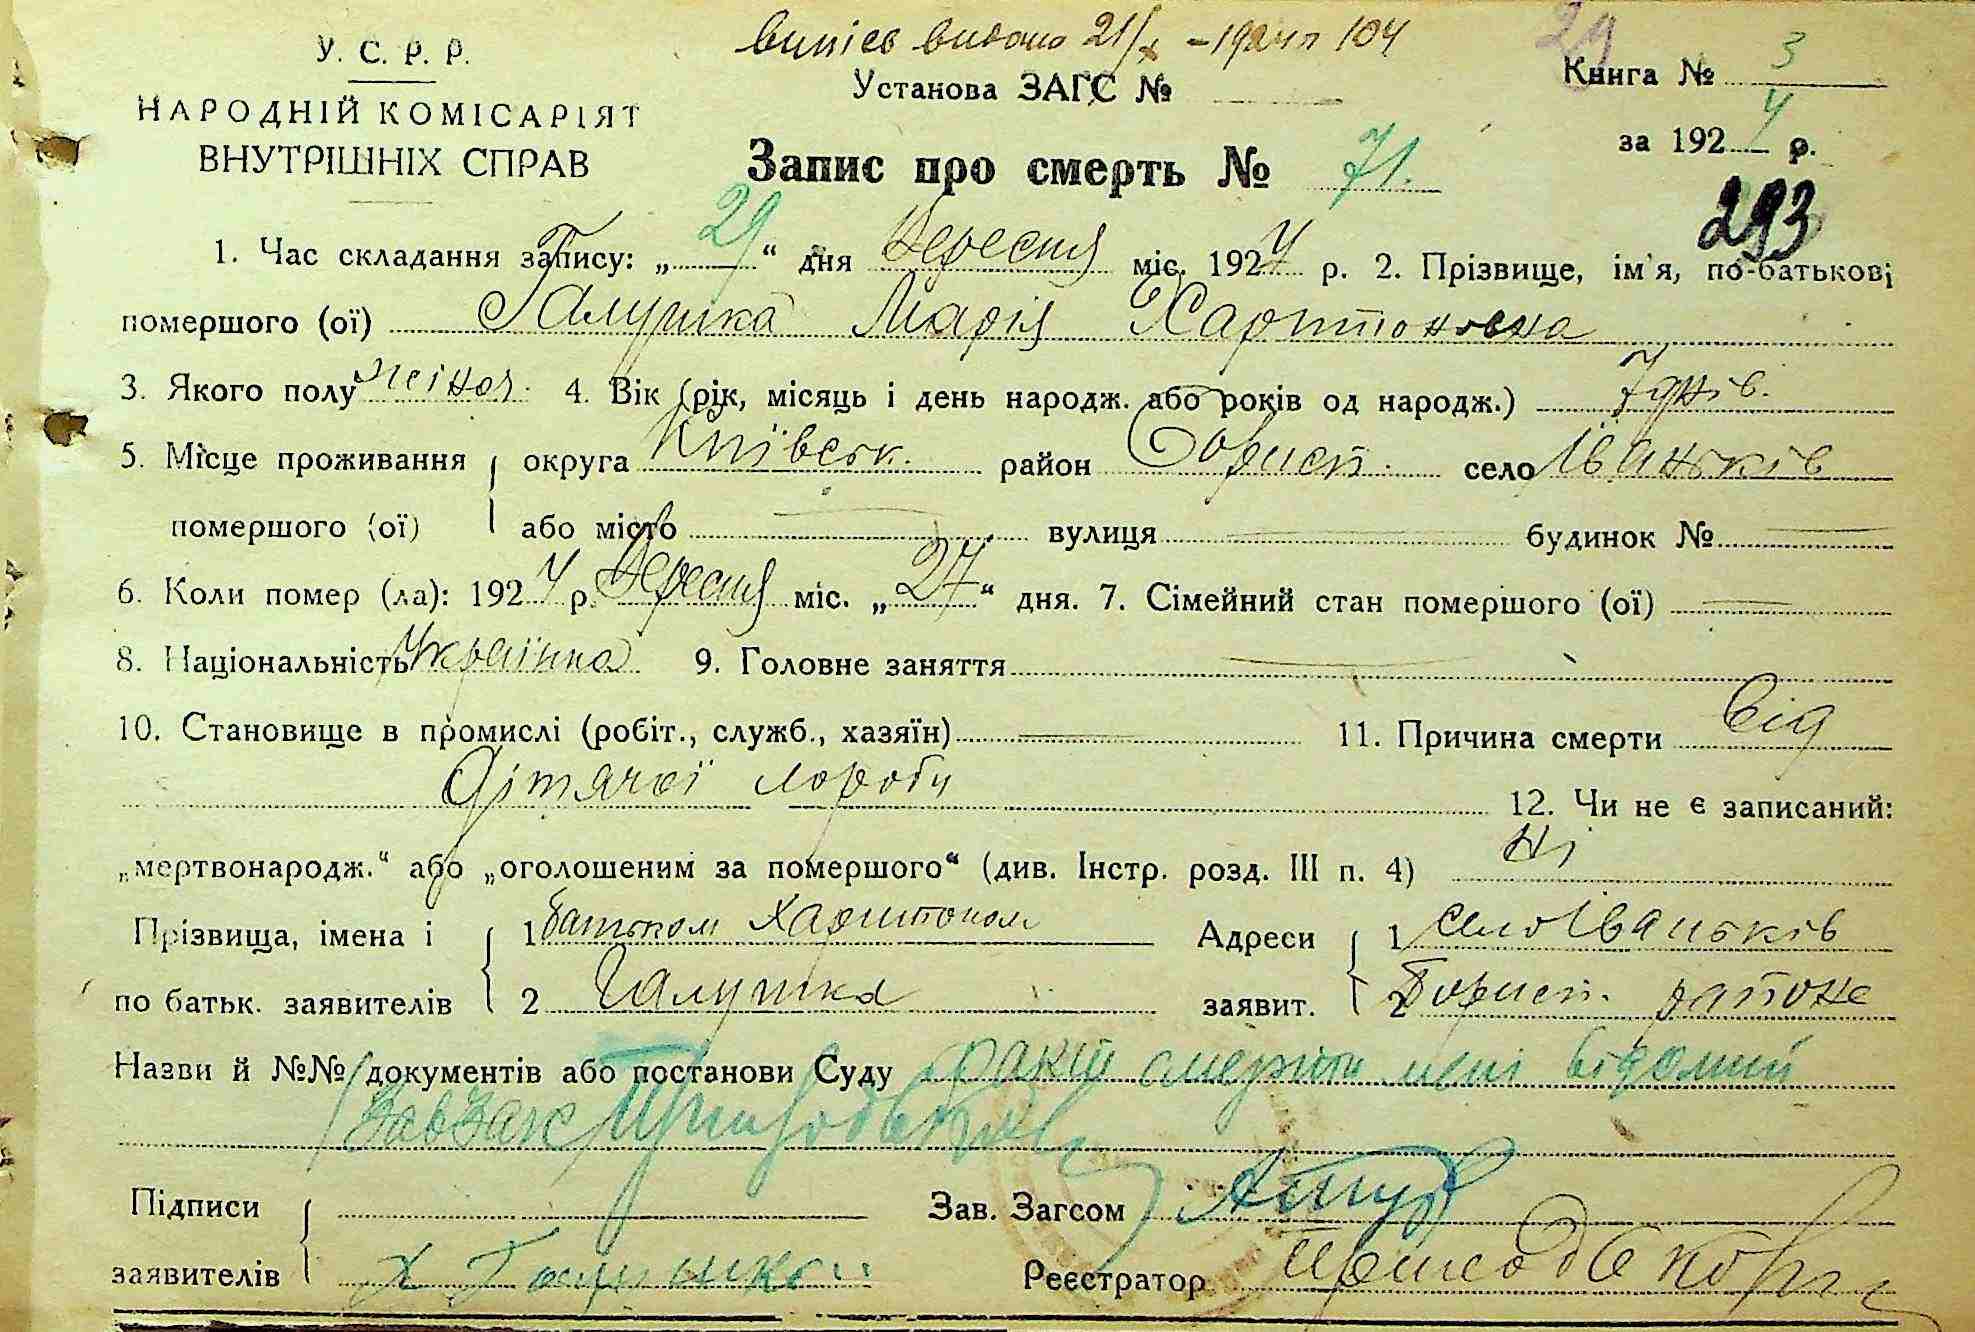 випіс видано 21/X - 1924 п 104
29
У. С. Р. Р.
НАРОДНІЙ КОМІСАРІЯТ
ВНУТРІШНІХ СПРАВ
Установа ЗАГС №
Книга № 3
за 1924 р.
Запис про смерть № 71.
293
1. Час складання запису: „29“ дня Вересня міс. 1924 р. 2. Прізвище, ім'я, по-батькові
помершого (ої) Галушка Марія Харитоновна
3. Якого полу жіноч. 4. Вік (рік, місяць і день народж. або років од народж.) 7 днів.
5. Місце проживання округа Київськ. район Борисп. село Іваньків
помершого (ої) або місто — вулиця — будинок № —
6. Коли помер (ла): 1924 р. Вересня міс. „27“ дня. 7. Сімейний стан помершого (ої) —
8. Національність Українка 9. Головне заняття —
10. Становище в промислі (робіт., служб., хазяїн) — 11. Причина смерти Від
Дітячої хороби
12. Чи не є записаний:
„мертвонародж.“ або „оголошеним за помершого“ (див. Інстр. розд. III п. 4) Ні
Прізвища, імена і 1 батьком Харитоном Адреси 1 село Іваньків
по батьк. заявителів 2 Галушка заявит. 2 Борисп. району
Назви й №№ документів або постанови Суду факт смерти мені відомий
Підписи Зав. Загсом
заявителів Х Галушка Реєстратор